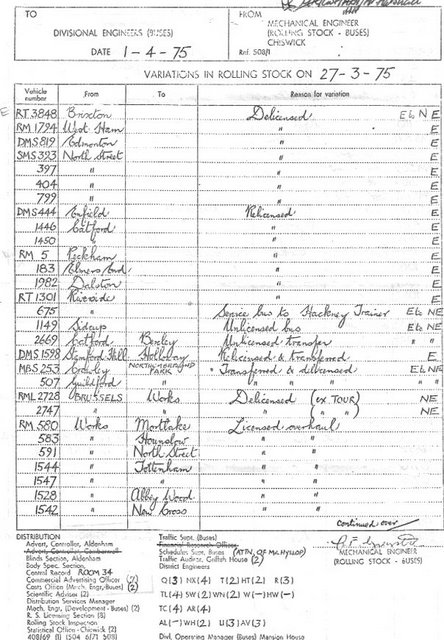 TO
DIVISIONAL ENGINEERS (BUSES)
DATE 1-4-75
FROM
MECHANICAL ENGINEER
(ROLLING STOCK - BUSES)
CHISWICK
Ref. 508/1
VARIATIONS IN ROLLING STOCK ON 27-3-75
Vehicle number From To Reason for variation
E RT 3848 Brixton Delicensed EL N E
RM 1794 West Ham " E
DMS 819 Edmonton " E
SMS 393 North Street " E
397 " " E
404 " " E
799 " " E
DMS 444 Enfield Relicensed E
1446 Catford " E
1450 " " E
RM 5 Peckham " E
183 Elmers End " E
1982 Dalston " E
RT 1301 Riverside " E
675 " Service bus to Hackney Trainer EL NE
1149 Sidcup Unlicensed bus EL NE
2669 Catford Bexley Unlicensed transfer " "
DMS 1598 Stamford Hill Holloway Relicensed & transferred E
MBS 253 Crawley NORTHUMBERLAND PARK Transferred & delicensed EL NE
507 Guildford " " " " " "
RML 2728 BRUSSELS Works Delicensed (ex TOUR) NE
2747 " " " ( " " ) NE
RM 580 Works Mortlake Licensed overhaul
583 " Hounslow " "
591 " North Street " "
1544 " Tottenham " "
1547 " " " "
1528 " Abbey Wood " "
1542 " New Cross " "
continued over
MECHANICAL ENGINEER
(ROLLING STOCK - BUSES)
DISTRIBUTION
Advert. Controller, Aldenham
Advert. Controller, Camberwell
Blinds Section, Aldenham
Body Spec. Section
Control Record ROOM 34
Commercial Advertising Officer (2)
Costs Office (Mech. Engr, Buses) (2)
Scientific Adviser (2)
Distribution Services Manager
Mech. Engr. (Development - Buses) (2)
R. S. Licensing Section (8)
Rolling Stock Inspection
Statistical Office - Chiswick (2)
Traffic Supt. (Buses)
Financial Research Officer
Schedules Supt. Buses (ATTN. OF Mr. HYLLOP)
Traffic Auditor, Griffith House (2)
District Engineers
Q (3) NX (4) T (2) HT (2) R (3)
TL (4) SW (2) WN (2) W (-) HW (-)
TC (4) AR (4)
AL (-) WH (2) U (3) AV (3)
Divl. Operating Manager (Buses) Mansion House